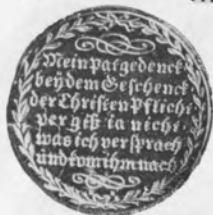 Mein pat gedenck
beÿ dem Geschenck
der Christen Pflicht
ver giß ia nicht.
was ich versprach
und kom ihm nach